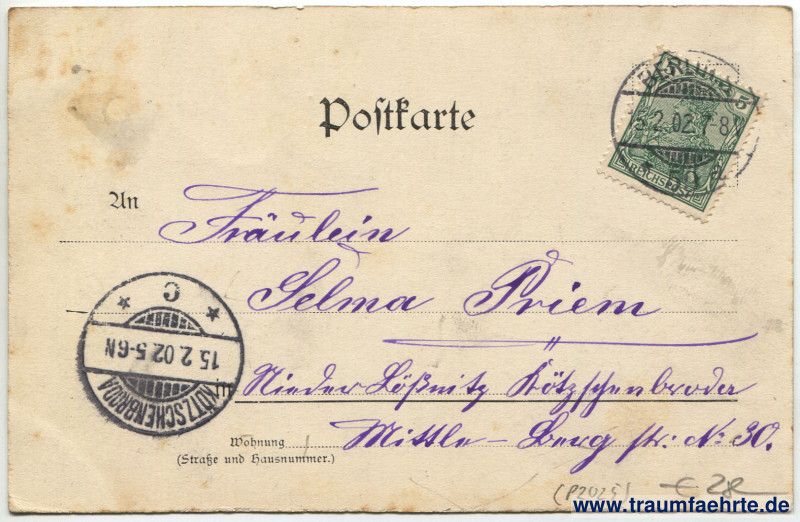 Postkarte
BERLIN
2.02.7-8
REICHSPOST
An
Fräulein
Selma Priem
C
15.2.02.5-6N
KÖTZSCHENBRODA
in Nieder Lößnitz Kötzschenbroda
Wohnung
(Straße und Hausnummer.)
Mittle-Berg str: № 30.
(P2025)
€ 28
www.traumfaehrte.de